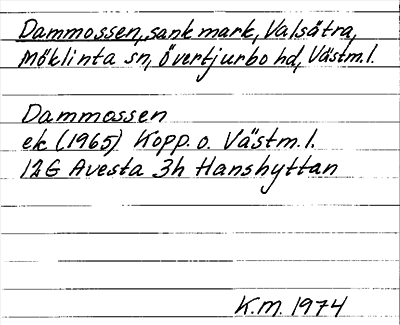 Dammossen, sank mark, Valsätra,
Möklinta sn, Övertjurbo hd, Västm.l.
Dammossen
ek (1965) Kopp. o. Västm.l.
12G Avesta 3h Hanshyttan
K.M. 1974